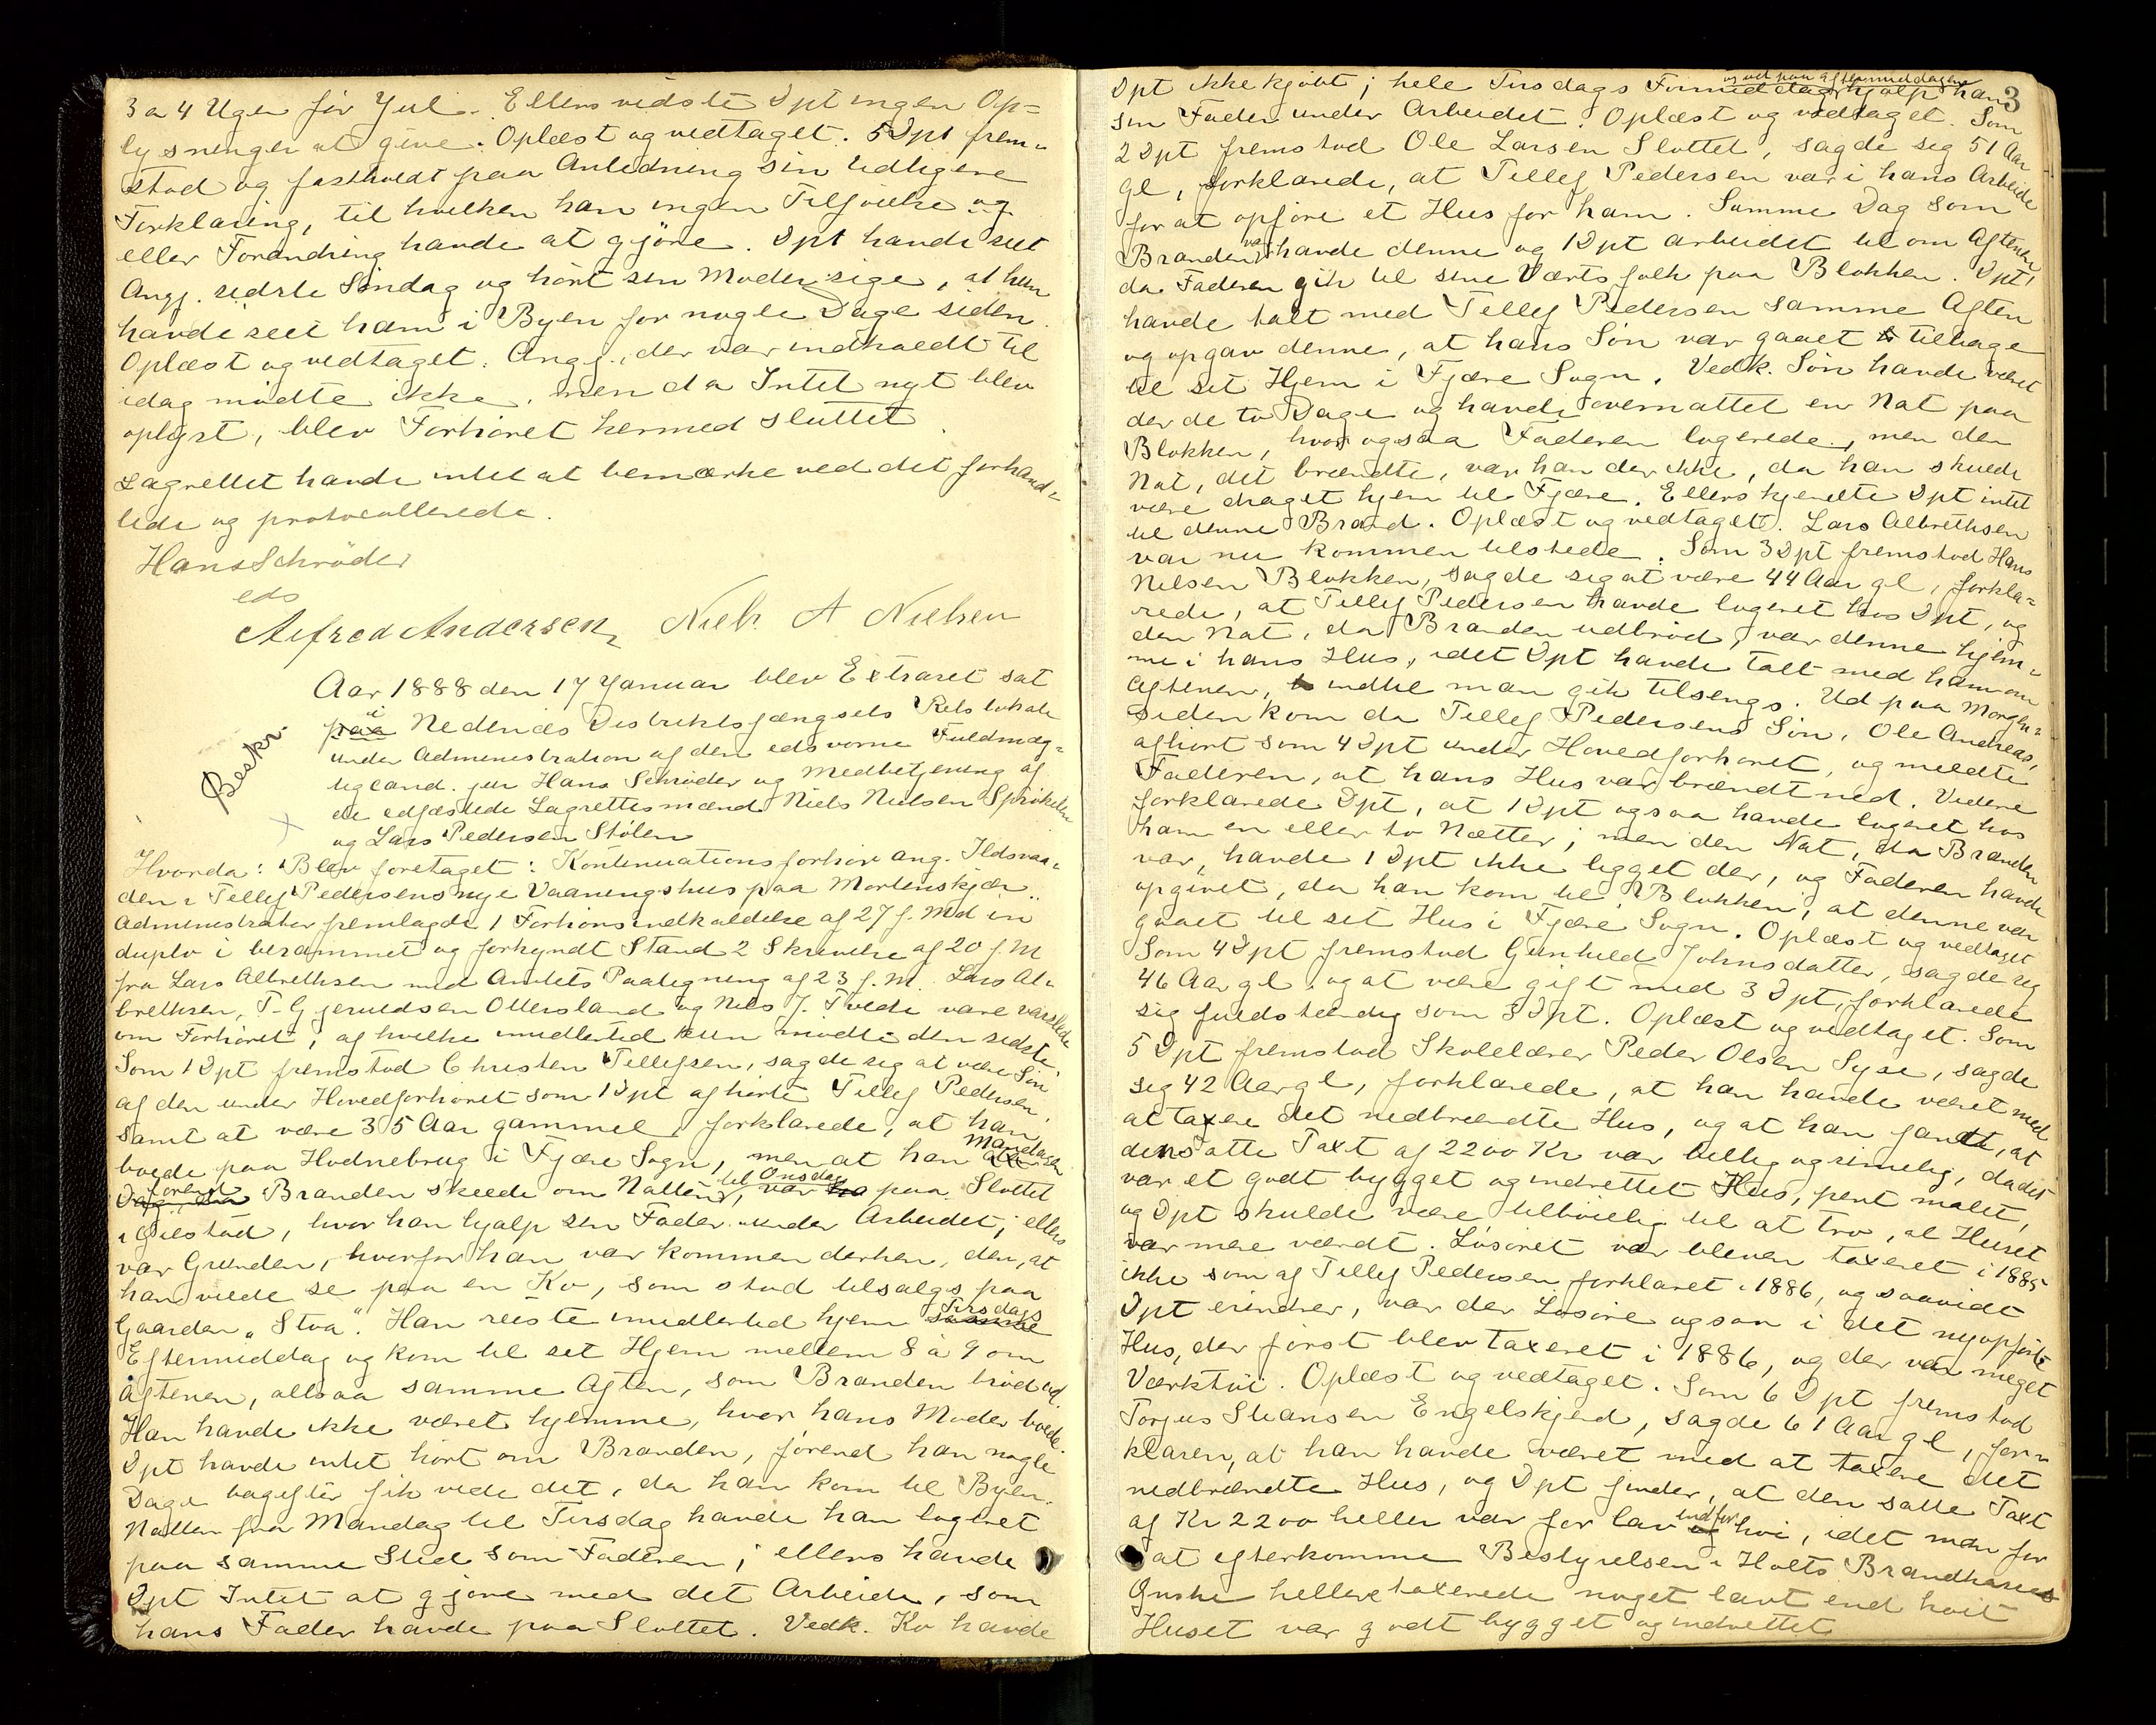 3 a 4 Uger før Jul. Ellers vidste Dpt ingen Op=
lysninger at give. Oplæst og vedtaget. 5 Dpt frem=
stod og fastholdt paa Anledning sin tidligere
Forklaring, til hvilken han ingen Tilføielse og
eller Forandring havde at gjøre. Dpt havde seet
Angj. sidste Søndag og hørt sin Moder sige, at hun
havde seet ham i Byen for nogle Dage siden.
Oplæst og vedtaget. Angj., der var indkaldt til
idag mødte ikke, men da Intet nyt blev
oplyst, blev Forhøret hermed sluttet.
Lagrettet havde intet at bemærke ved det forhand=
lede og protocollerede.
Hans Schrøder
eds
Alfred Andersen Niels A Nielsen
Aar 1888 den 17 Januar blev Extraret sat
Beskr.
paa i Nedenæs Distriktsfængsels Retslokale
under Administration af den edsvorne Fuldmæg=
tig cand. jur Hans Schrøder og Medbetjening af
de edfæstede Lagrettesmænd Niels Nielsen Sprøkelen
og Lars Pedersen Stølen
Hvorda: Blev foretaget: Kontinuationsforhør ang. Ildsvaa=
den i Tellef Pedersens nye Vaaningshus paa Mortenskjær.
Administrator fremlagde 1 Forhørsindkaldelse af 27 f. Md in
duplo i berammet og forkyndt Stand 2 Skrivelse af 20 f. M
fra Lars Albrethsen med Amtets Paategning af 23 f. M. Lars Al=
brethsen, T. Gjeruldsen Ottersland og Nils J. Tvede vare varslede
om Forhøret, af hvilke imidlertid kun mødte den sidste.
Som 1 Dpt fremstod Christen Tellefsen, sagde sig at være Søn
af den under Hovedforhøret som 1 Dpt afhørte Tellef Pedersen,
samt at være 35 Aar gammel, forklarede, at han
boede paa Hodnebrog i Fjære Sogn, men at han Mandagen
Dag, da forend Branden skeede om Natten til Onsdag, var ha paa Slottet
i Øiestad, hvor han hjalp sin Fader under Arbeidet; ellers
var Grunden, hvorfor han var kommen derhen, den, at
han vilde se paa en Ko, som stod tilsalgs paa
Gaarden "Stva". Han reiste imidlertid hjem samme Tirsdags
Eftermiddag og kom til sit Hjem mellem 8 à 9 om
Aftenen, altsaa samme Aften, som Branden brød ud.
Han havde ikke været hjemme, hvor hans Moder boede.
Dpt havde intet hørt om Branden, førend han nogle
Dage bagefter fik vide det, da han kom til Byen.
Natten fra Mandag til Tirsdag havde han logeret
paa samme Sted som Faderen; ellers havde
Dpt Intet at gjøre med det Arbeide, som
hans Fader havde paa Slottet. Vedk. Ko havde
3
Dpt ikke kjøbt; hele Tirsdags Formiddag og ud paa Eftermiddagen hjalp han
sin Fader under Arbeidet. Oplæst og vedtaget. Som
2 Dpt fremstod Ole Larsen Slottet, sagde sig 51 Aar
gl, forklarede, at Tellef Pedersen var i hans Arbeide
for at opføre et Hus for ham. Samme Dag som
Branden var havde denne og 1 Dpt arbeidet til om Aftenen,
da Faderen gik til sine Værtsfolk paa Blokken. Dpt
havde talt med Tellef Pedersen samme Aften
og opgav denne, at hans Søn var gaaet tilbage
til sit Hjem i Fjære Sogn. Vedk. Søn havde været
der de to Dage og havde overnattet en Nat paa
Blokken, hvor ogsaa Faderen logerede, men den
Nat, det brændte, var han der ikke, da han skulde
være draget hjem til Fjære. Ellers kjendte Dpt intet
til denne Brand. Oplæst og vedtaget. Lars Albrethsen
var nu kommen tilstede. Som 3 Dpt fremstod Hans
Nilsen Blokken, sagde sig at være 44 Aar gl, forkla=
rede, at Tellef Pedersen havde logeret hos Dpt, og
den Nat, da Branden udbrød, var denne hjem=
me i hans Hus, idet Dpt havde talt med ham om
Aftenen, indtil man gik tilsengs. Ud paa Morgen=
siden kom da Tellef Pedersens Søn, Ole Andreas,
afhørt som 4 Dpt under Hovedforhøret, og meldte
Faderen, at hans Hus var brændt ned. Videre
forklarede Dpt, at 1 Dpt ogsaa havde logeret hos
ham en eller to Nætter; men den Nat, da Branden
var, havde 1 Dpt ikke ligget der, og Faderen havde
opgivet, da han kom til Blokken, at denne var
gaaet til sit Hus i Fjære Sogn. Oplæst og vedtaget
Som 4 Dpt fremstod Gunhild Johnsdatter, sagde sig
46 Aar gl. og at være gift med 3 Dpt, forklarede
sig fuldstændig som 3 Dpt. Oplæst og vedtaget. Som
5 Dpt fremstod Skolelærer Peder Olsen Syse, sagde
sig 42 Aar gl, forklarede, at han havde været med
at taxere det nedbrændte Hus, og at han fandt, at
den satte Taxt af 2200 Kr var billig og rimelig, da det
var et godt bygget og indrettet Hus, pent malet,
og Dpt skulde være tilbøielig til at tro, at Huset
var mere værdt. Løsøret var bleven taxeret i 1885
ikke som af Tellef Pedersen forklaret i 1886, og saavidt
Dpt erindrer, var der Løsøre ogsaa i det nyopførte
Hus, der først blev taxeret i 1886, og der var meget
Værktøi. Oplæst og vedtaget. Som 6 Dpt fremstod
Torjus Stiansen Engelskjend, sagde 61 Aar gl, for=
klaren, at han havde været med at taxere det
nedbrændte Hus, og Dpt finder, at den satte Taxt
af Kr 2200 heller var for lav end for høi, idet man for
at efterkomme Bestyrelsen i Holts Brandkasses
Ønske hellere taxerede noget lavt end høit
Huset var godt bygget og indrettet